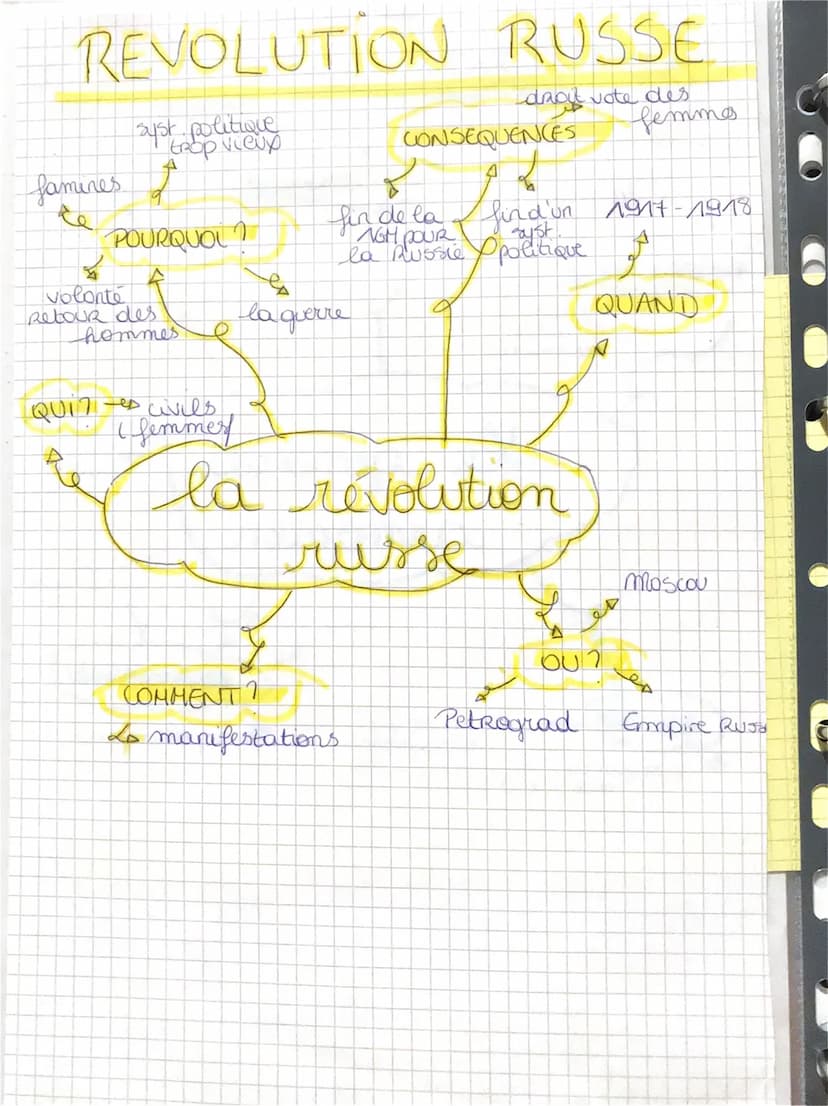 REVOLUTION RUSSE
droit vote des
femmes
CONSEQUENCES
syst. politique
trop vieux
famines
POURQUOI?
volonté
retour des
hommes
la guerre
fin de la
1GM POUR
la Russie
fin d'un
syst.
politique
1917-1918
QUAND
QUI? civils
(femmes)
la révolution
russe
Moscou
OU?
Petrograd
Empire Russe
COMMENT?
manifestations